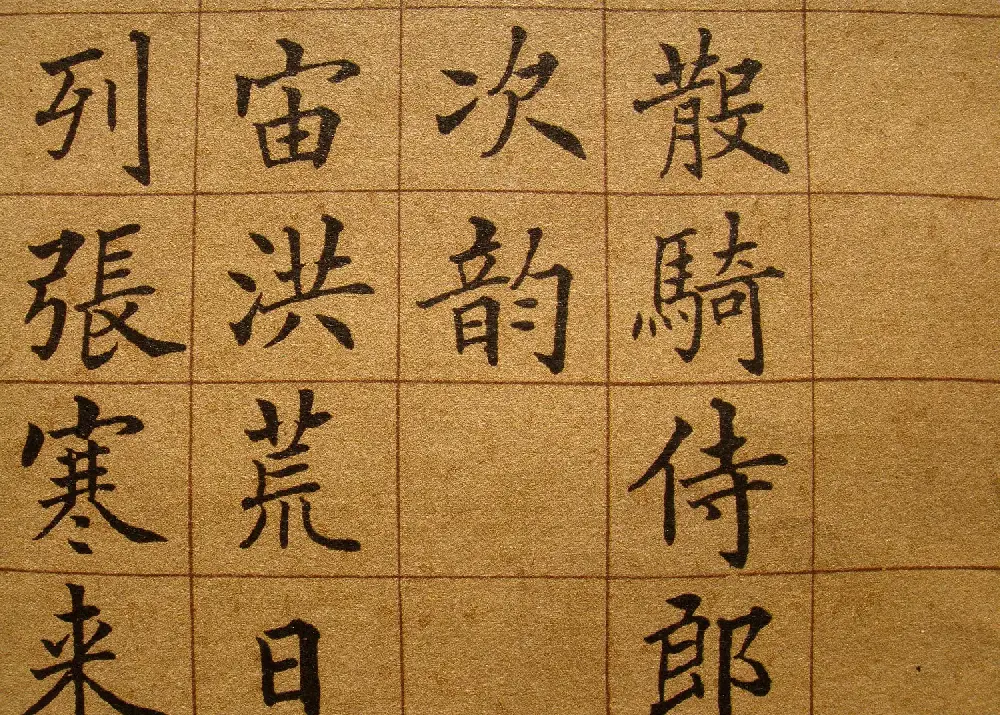 散騎侍郎
次韵
宙洪荒日
列張寒来